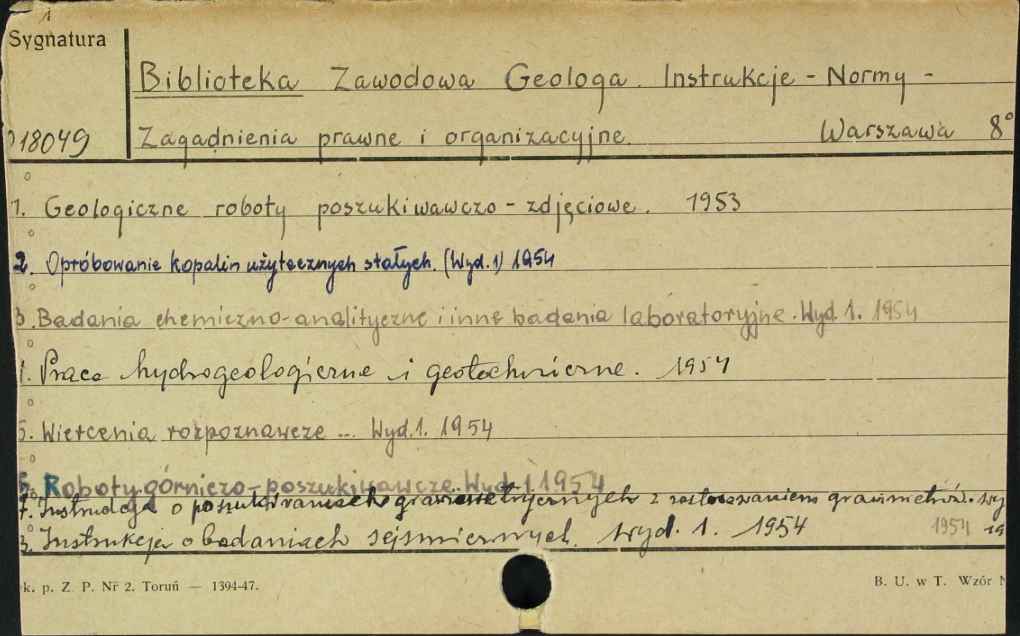 1
Sygnatura
Biblioteka Zawodowa Geologa. Instrukcje - Normy -
18049
Zagadnienia prawne i organizacyjne. Warszawa 8°
1. Geologiczne roboty poszukiwawczo - zdjęciowe. 1953
2. Opróbowanie kopalin użytecznych stałych. (Wyd. 1) 1954
3. Badania chemiczno-analityczne i inne badania laboratoryjne. Wyd. 1. 1954
Prace hydrogeologiczne i geotechniczne. 1954
5. Wiercenia rozpoznawcze ... Wyd. 1. 1954
6. Roboty górniczo-poszukiwawcze. Wyd. 1 1954
7. Instrukcja o poszukiwaniach grawimetrycznych z zastosowaniem grawimetrów. Wy
Instrukcja o badaniach sejsmicznych. Wyd. 1. 1954 1954 19
k. p. Z. P. Nr 2. Toruń — 1394-47. B. U. w T. Wzór N